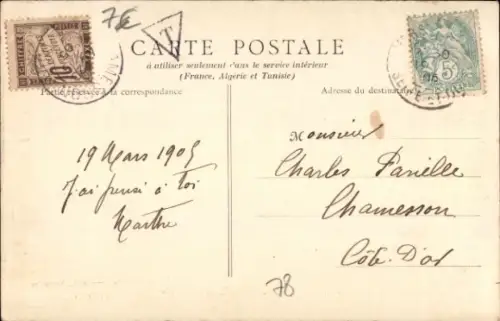 7€
T
CARTE POSTALE
à utiliser seulement dans le service intérieur
(France, Algérie et Tunisie)
Partie réservée à la correspondance
Adresse du destinataire
19 Mars 1905
J'ai pensé à toi
Marthe
Monsieur
Charles Parielle
Chamesson
Côte-d'or
78
10
5